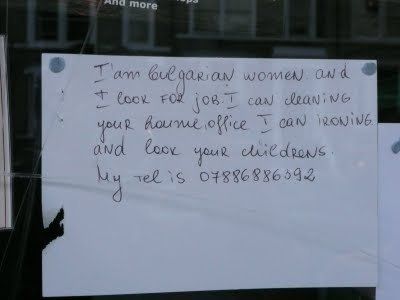 And more
I am bulgarian women and
I look FOR JOB. I can cleaning
your houme, office I can IRONING
and look your childrens.
My Tel is 07886886392